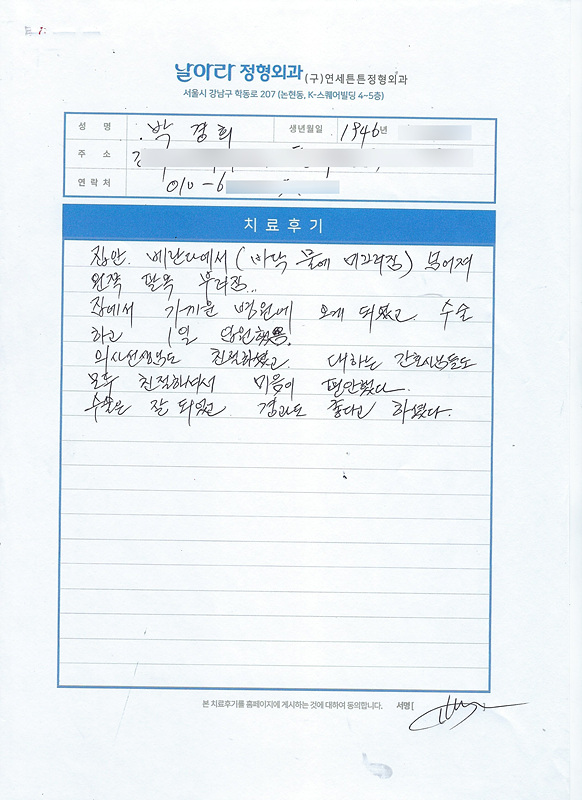 날아라 정형외과 (구)연세튼튼정형외과
서울시 강남구 학동로 207 (논현동, K-스퀘어빌딩 4~5층)
성 명 박경희 생년월일 1946년
주 소
연락처 010-6
치료후기
집안. 베란다에서 (바닥 물에 미끄러짐) 넘어져
왼쪽 팔목 부러짐...
집에서 가까운 병원에 오게 되었고 수술
하고 1일 입원했음.
의사선생님도 친절하셨고. 대하는 간호사님들도
모두 친절하셔서 마음이 편안했다.
수술은 잘 되었고 경과도 좋다고 하셨다.
본 치료후기를 홈페이지에 게시하는 것에 대하여 동의합니다. 서명 [